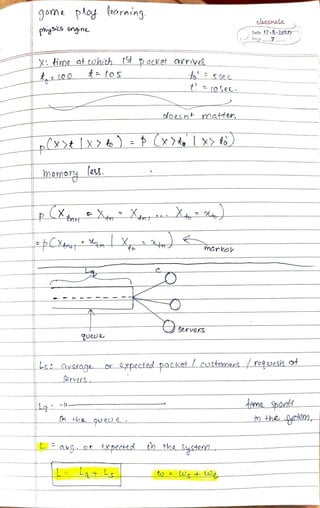 game play learning.
physics engine
classmate
Date
Page 7
X: time at which 1st packet arrives
t₀ = 100 t = 105
t₀' = 5 sec
t' = 10 sec.
doesnt matter.
p(X>t | X>t₀) = p (X>t₀' | X>t₀')
memory less.
= p(Xtn+1 = xtn | Xtn = xtn) ← markov
Lq
c
queue
servers
Ls: average or expected packet / customers / requests at servers.
Lq: -11-
in the queue.
time spents
in the system.
L = avg. or expected in the system.
L = Lq + Ls
w = ws + wq